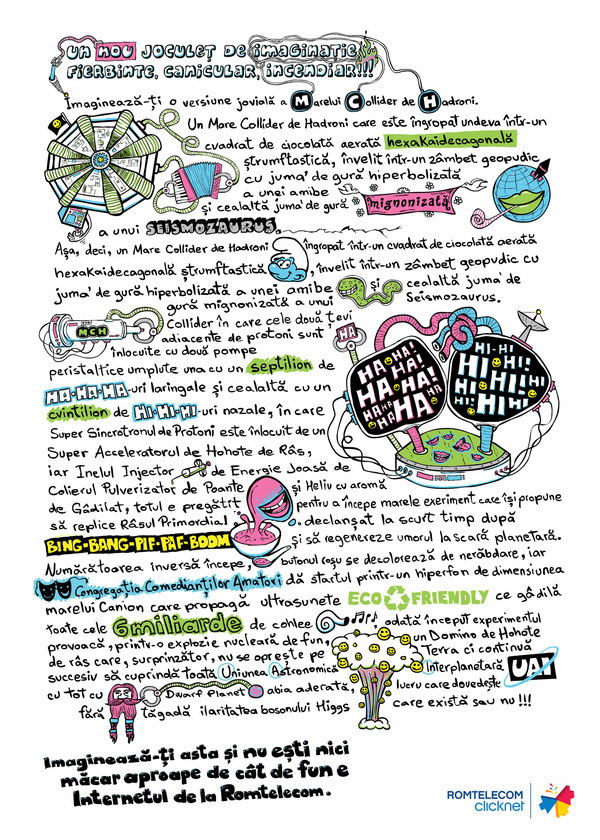 UN NOU JOCULEȚ DE IMAGINAȚIE
FIERBINTE, CANICULAR, INCENDIAR!!!
Imaginează-ți o versiune jovială a Marelui Collider de Hadroni.
Un Mare Collider de Hadroni care este îngropat undeva într-un
cvadrat de ciocolată aerată hexakaidecagonală
ștrumftastică, învelit într-un zâmbet geopudic
cu juma' de gură hiperbolizată
a unei amibe
și cealaltă juma' de gură mignonizată
a unui SEISMOZAURUS.
Așa, deci, un Mare Collider de Hadroni îngropat într-un cvadrat de ciocolată aerată
hexakaidecagonală ștrumftastică, învelit într-un zâmbet geopudic cu
juma' de gură hiperbolizată a unei amibe și cealaltă juma' de
gură mignonizată a unui Seismozaurus.
MCH
Collider în care cele două țevi
adiacente de protoni sunt
înlocuite cu două pompe
peristaltice umplute una cu un septilion de
HA-HA-HA-uri laringale și cealaltă cu un
cvintilion de HI-HI-HI-uri nazale, în care
HA
HA-HA!
HA-HA!
HA-HA!
HA HA HA
HA HA
HI-HI!
HI-HI!
HI HI HI
HI-HI!
HI HI
Super Sincrotronul de Protoni este înlocuit de un
Super Acceleratorul de Hohote de Râs,
iar Inelul Injector de Energie Joasă de
Colierul Pulverizator de Poante și Heliu cu aromă
de Gâdilat, totul e pregătit pentru a începe marele exeriment care își propune
să replice Râsul Primordial declanșat la scurt timp după
BING-BANG-PIF-PAF-BOOM și să regenereze umorul la scară planetară.
Numărătoarea inversă începe, butonul roșu se decolorează de nerăbdare, iar
Congregația Comedianților Amatori dă startul printr-un hiperfon de dimensiunea
marelui Canion care propagă ultrasunete ECO FRIENDLY ce gâdilă
toate cele 6 miliarde de cohlee, odată început experimentul
provoacă, printr-o explozie nucleară de fun, un Domino de Hohote
de râs care, surprinzător, nu se oprește pe Terra ci continuă
succesiv să cuprindă toată Uniunea Astronomică Interplanetară UAI
cu tot cu Dwarf Planet abia aderată, lucru care dovedește
fără tăgadă ilaritatea bosonului Higgs care există sau nu!!!
Imaginează-ți asta și nu ești nici
măcar aproape de cât de fun e
Internetul de la Romtelecom.
ROMTELECOM
clicknet